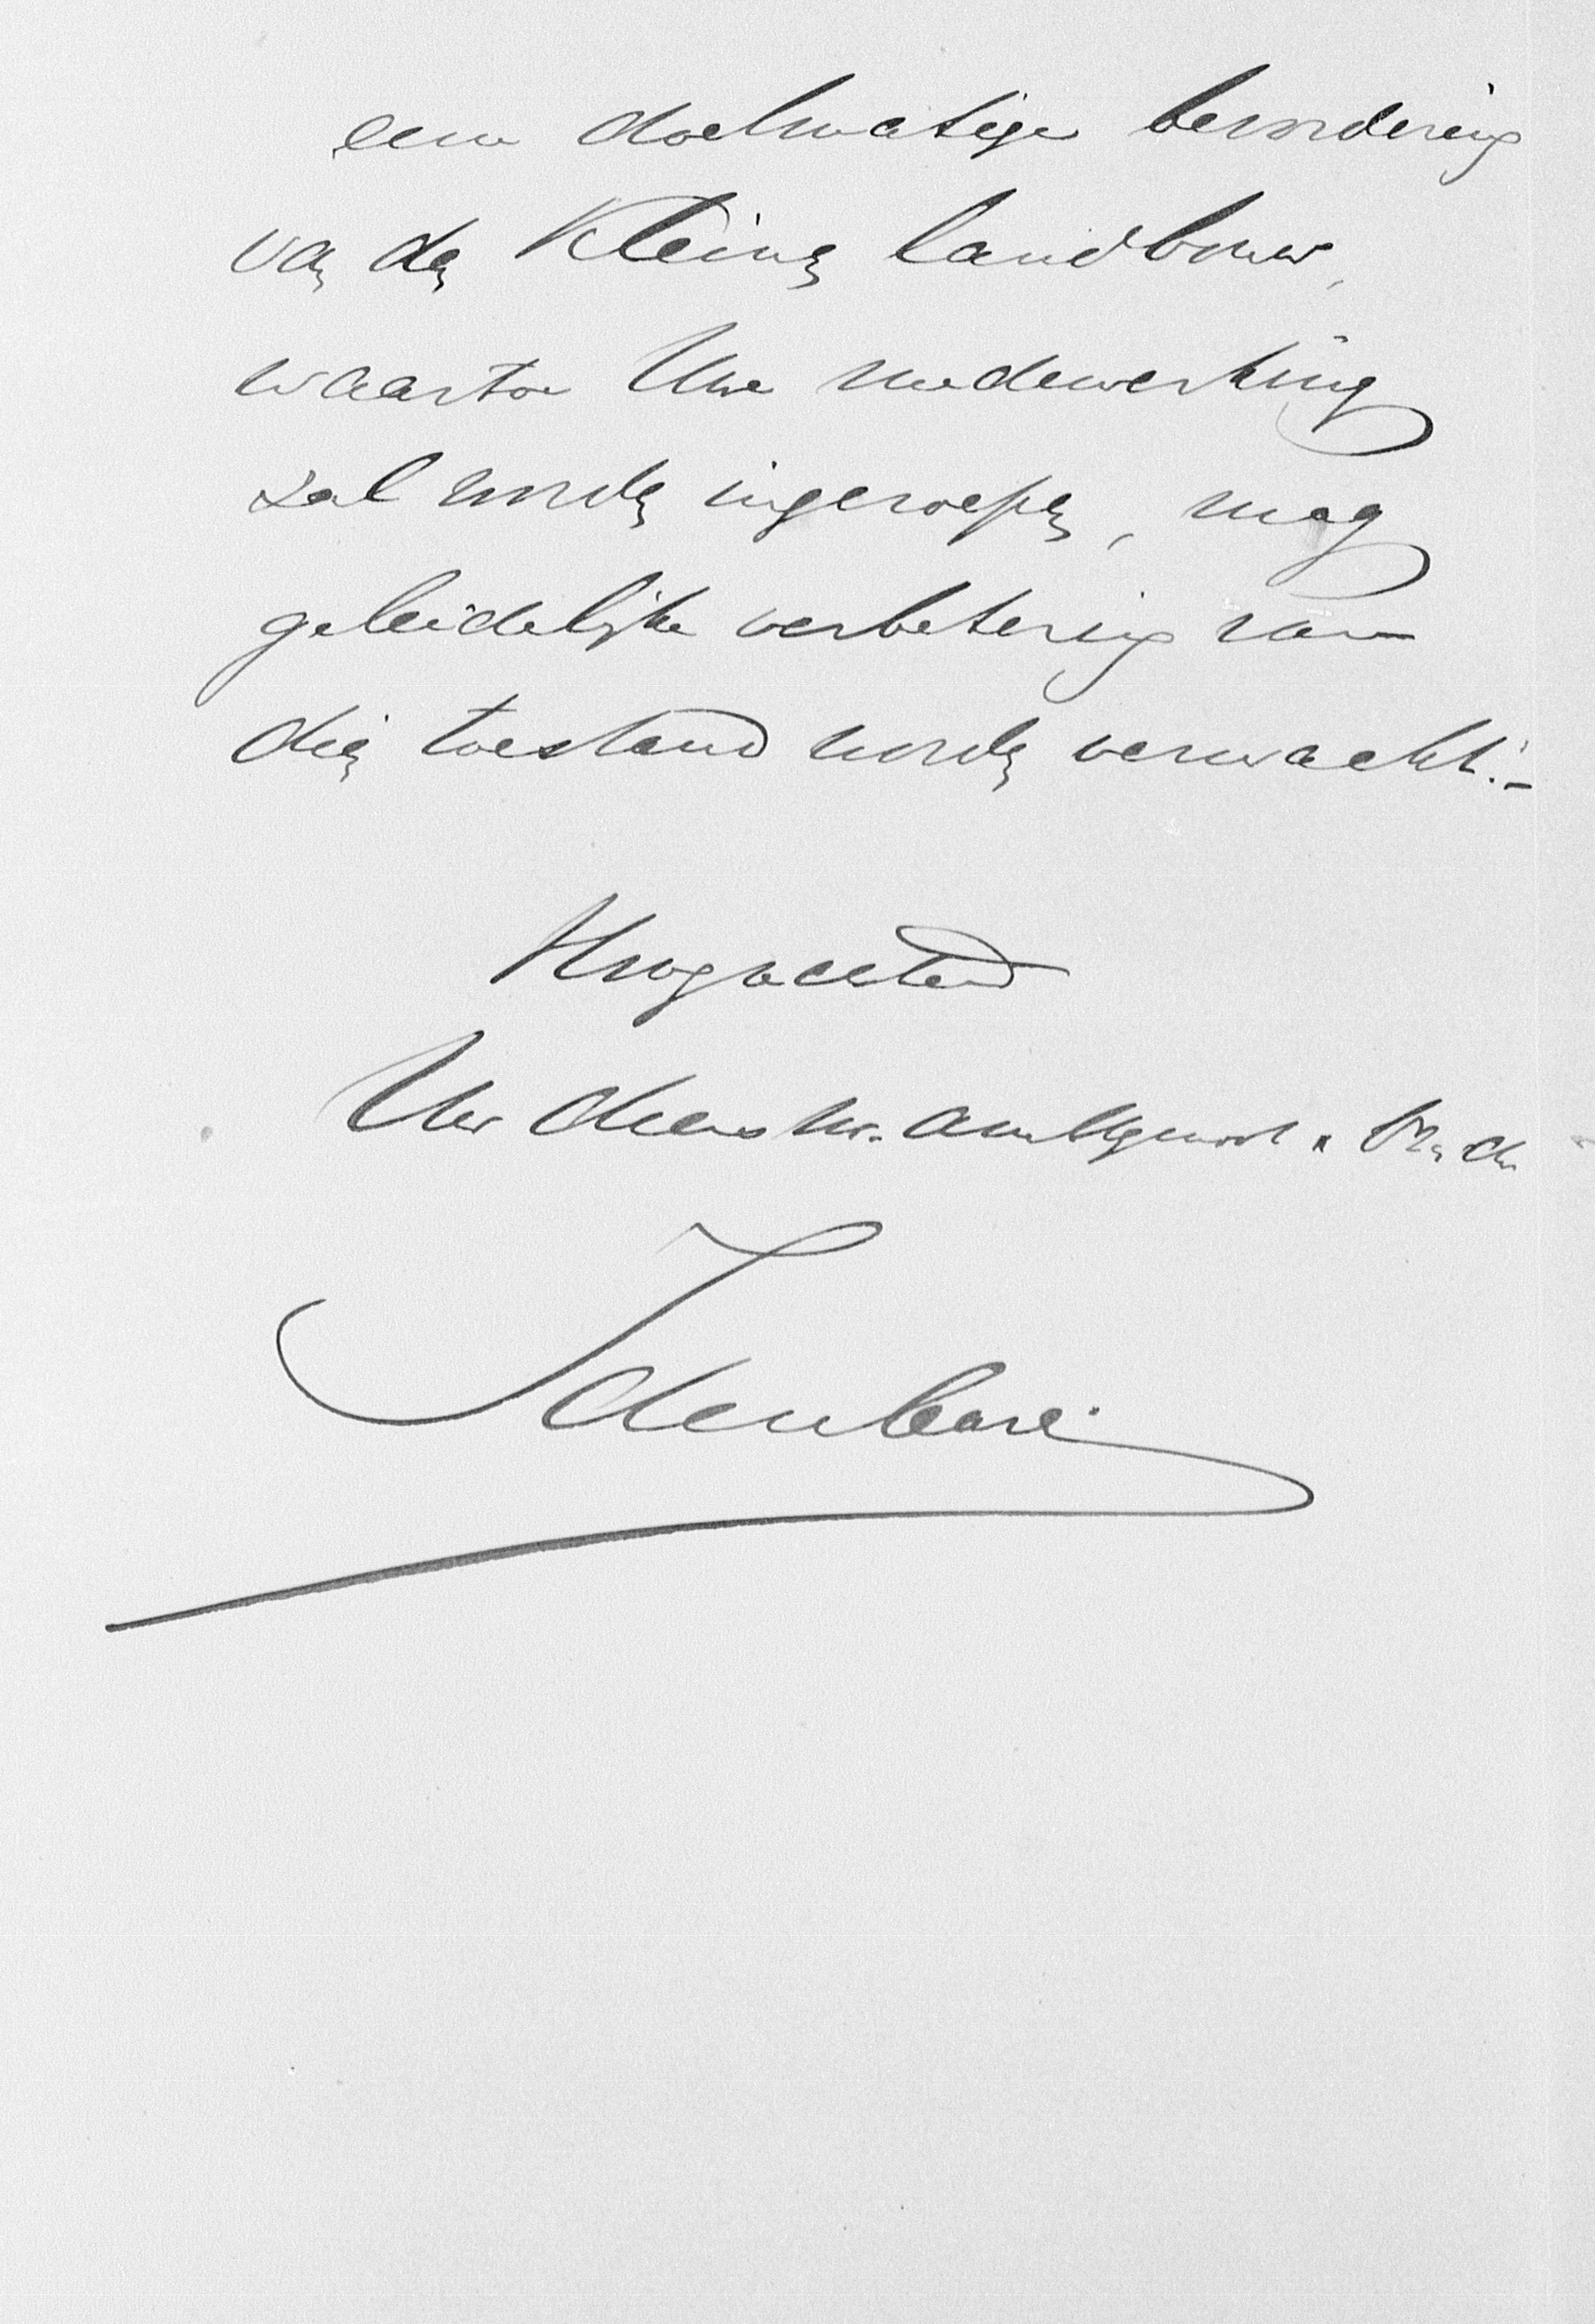 eene doelmatige bevordering
van den Kleinen landbouw,
waartoe Uwe medewerking
zal worden ingeroepen, mag
geleidelijke verbetering van
dien toestand worden verwacht.-
Hoogachtend
Uw dienstw. ambtgenoot & Vriend
Idenburg